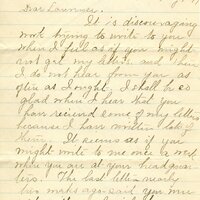 Dear Lawrence,
It is discouraging
work trying to write to you
when I feel as if you might
not get my letters and when
I do not hear from you as
often as I ought. I shall be so
glad when I hear that you
have received some of my letters
because I have written lots of
them. It seems as if you
might write to me once a week
when you are at your headquar
ters. The last letter nearly
two weeks ago said you were